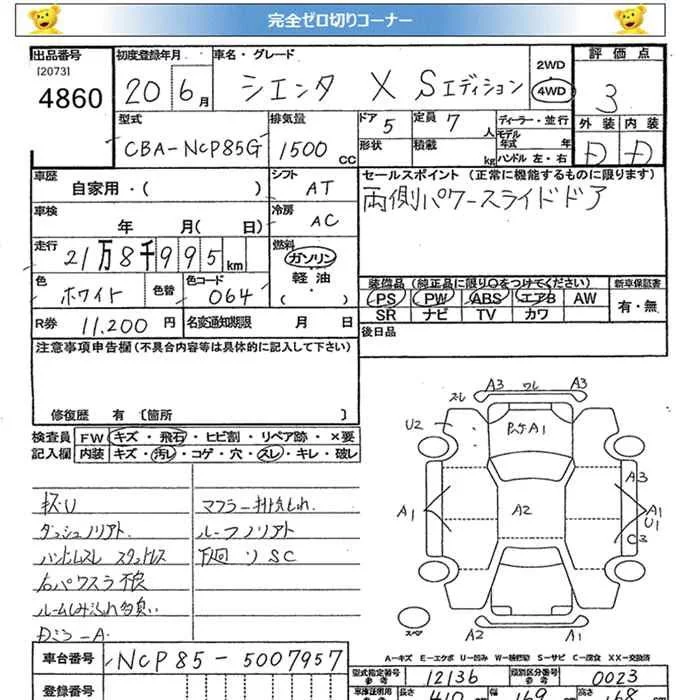 完全ゼロ切りコーナー
出品番号
[2073]
4860
初度登録年月
20 6月
車名・グレード
シエンタ X Sエディション
2WD
4WD
評価点
3
型式
CBA-NCP85G
排気量
1500 CC
ドア 5
定員 7 人
形状
積載 kg
ディーラー・並行
モデル年式 年
ハンドル 左・右
外装 内装
D D
車歴
自家用・( )
シフト
AT
セールスポイント (正常に機能するものに限ります)
両側パワースライドドア
車検
年 月( 日)
冷房
AC
走行
21万8千995km
燃料
ガソリン
・
軽油
・
( )
色
ホワイト
色替
色コード
064
装備品(純正品に限り○をつけてください)
新車保証書
PS PW ABS エアB AW
有・無
SR ナビ TV カワ
R券 11,200 円
名変通知期限 月 日
後日品
注意事項申告欄(不具合内容等は具体的に記入して下さい)
修復歴 有 [箇所 ]
検査員
記入欄
FW キズ・飛石・ヒビ割・リペア跡・×要
内装 キズ・汚レ・コゲ・穴・スレ・キレ・破レ
キズU
ダッシュノリアト
ハンドルスレ スタットレス
右パワスラ不良
ルームしみ汚れ多臭い
マフラー排気もれ
ルーフノリアト
下回リSC
A3 ワレ A3
スレ
U2
P.ケA1
A3
A1
A2
A1
U1
C3
スペア
A2
A1
A-キズ E-エクボ U-凹み W-補修跡 S-サビ C-腐食 XX-交換済
車台番号
NCP85-5007957
登録番号
型式指定番号
参考
12136
類別区分番号
参考
0023
車庫証明用
参考
長さ
410 cm
幅
169 cm
高さ
168 cm